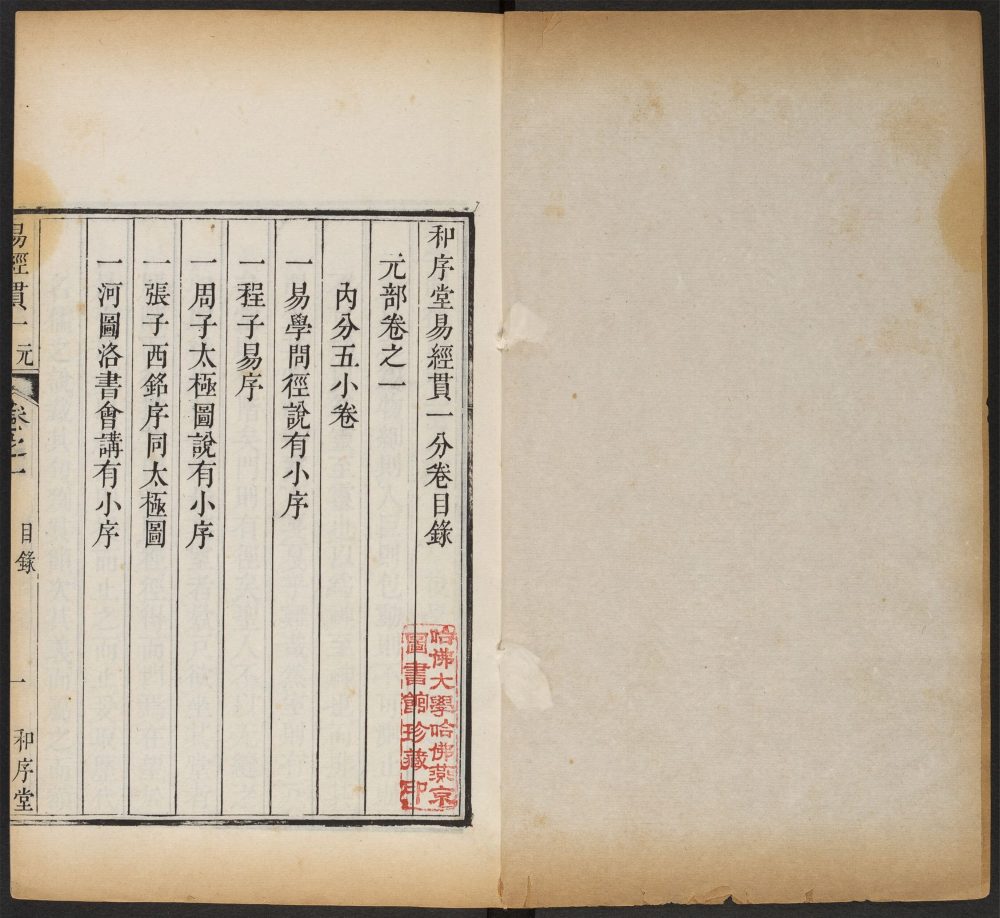 和序堂易經貫一分卷目錄
元部卷之一
內分五小卷
一易學問徑說有小序
一程子易序
一周子太極圖說有小序
一張子西銘序同太極圖
一河圖洛書會講有小序
易經貫一 元 卷之一 目錄 一 和序堂
哈佛大學哈佛燕京
圖書館珍藏印